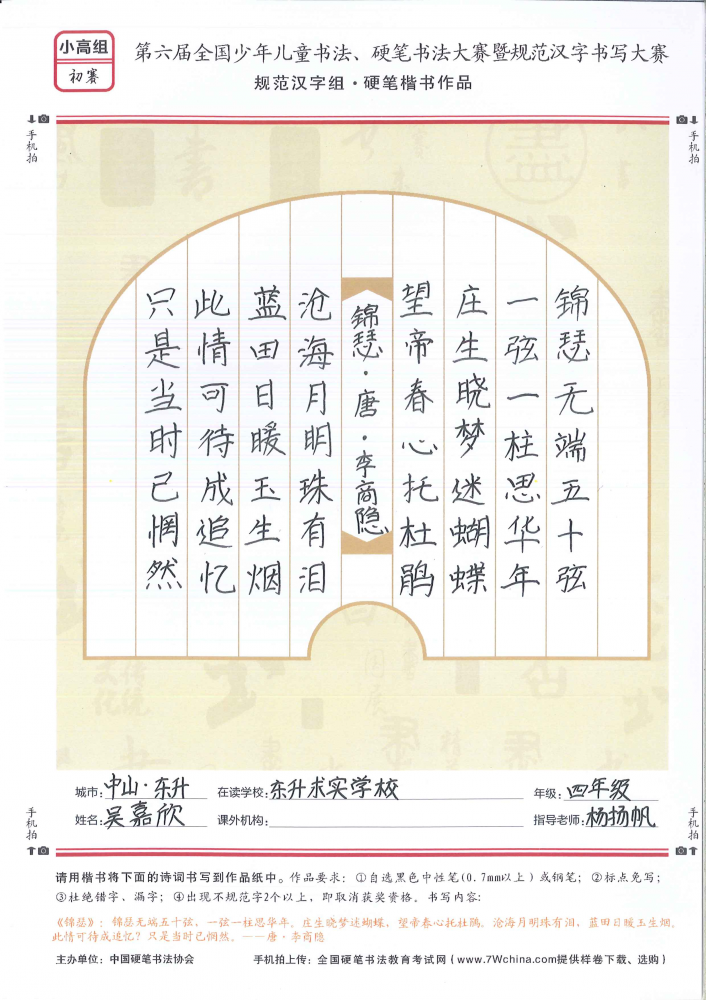 小高组
初赛
第六届全国少年儿童书法、硬笔书法大赛暨规范汉字书写大赛
规范汉字组·硬笔楷书作品
手机拍
手机拍
锦瑟无端五十弦
一弦一柱思华年
庄生晓梦迷蝴蝶
望帝春心托杜鹃
锦瑟·唐·李商隐
沧海月明珠有泪
蓝田日暖玉生烟
此情可待成追忆
只是当时已惘然
城市:中山·东升 在读学校:东升求实学校 年级:四年级
姓名:吴嘉欣 课外机构: 指导老师:杨扬帆
手机拍
手机拍
请用楷书将下面的诗词书写到作品纸中。作品要求:①自选黑色中性笔(0.7mm以上)或钢笔;②标点免写;
③杜绝错字、漏字;④出现不规范字2个以上,即取消获奖资格。书写内容:
《锦瑟》:锦瑟无端五十弦,一弦一柱思华年。庄生晓梦迷蝴蝶,望帝春心托杜鹃。沧海月明珠有泪,蓝田日暖玉生烟。
此情可待成追忆?只是当时已惘然。——唐·李商隐
主办单位:中国硬笔书法协会 手机拍上传:全国硬笔书法教育考试网(www.7Wchina.com提供样卷下载、选购)